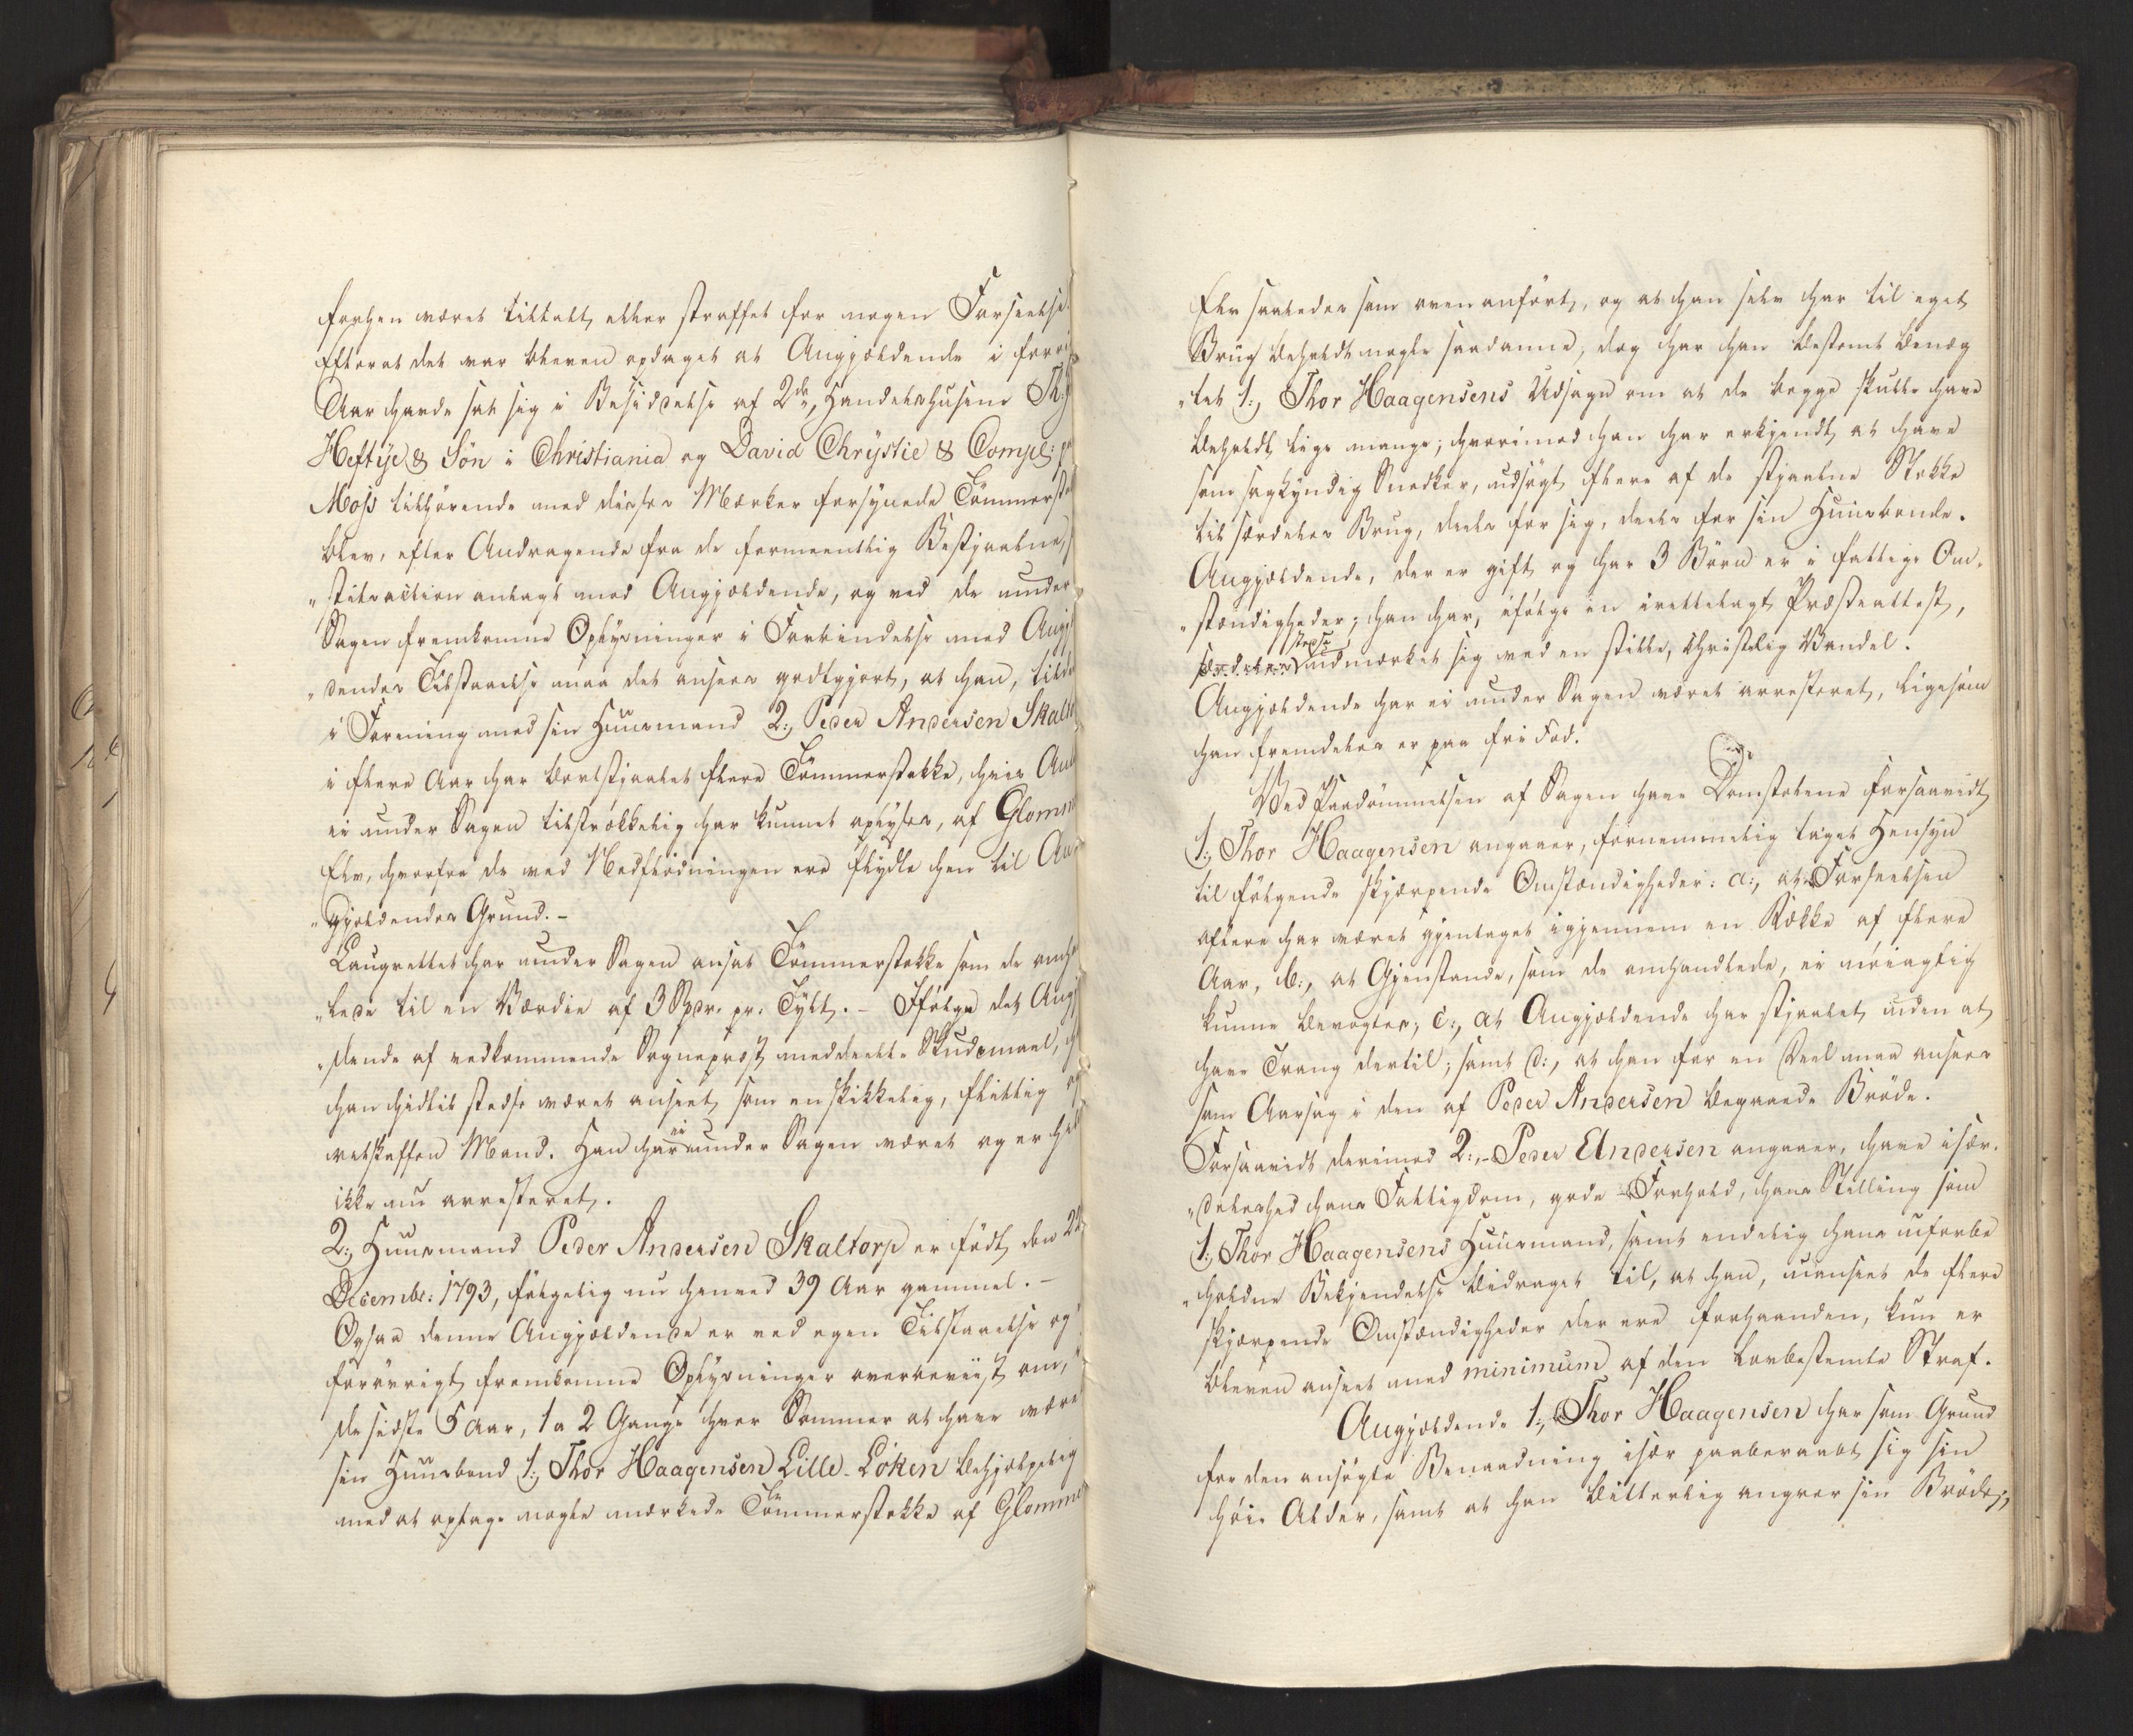 forhen været tiltalt, eller straffet for nogen Forseelse.
Efterat det var bleven opdaget at Angjældende i forri
Aar havde sat sig i Besiddelse af 2de, Handelshusene Th. J.
Heftye & Sön i Christiania og David Chrystie & Compe:
Moss tilhørende med disses Mærker forsynede Tømmerstok
blev, efter Andragende fra de formeentlig Bestjaalne,
„stitsaction anlagt mod Angjældende, og ved de under
Sagen fremkomne Oplysninger i Forbindelse med Angj
„dendes Tilstaaelse maa det ansees godtgjort, at han, tild
i Forening med sin Huusmand 2:, Peder Andersen Skalt
i flere Aar har bortstjaalet flere Tømmerstokke, hvis An
ei under Sagen tilstrækkelig har kunnet oplyses, af Glomm
Elv, hvorfra de ved Nedflødningen ere flydte hen til An
„gjældendes Grund. –
Laugrettet har under Sagen ansat Tømmerstokke som de omh
„lede til en Værdie af 3 Spdr. pr. Tylt. – Ifølge det Angj
„dende af vedkommende Sogneprest meddeelte Skudsmaal,
han hidtil stedse været anseet, som en skikkelig, flittig og
retskaffen Mand. Han har ei under Sagen været og er hel
ikke nu arresteret.
2:, Huusmand Peder Andersen Skaltorp er født den 22
Decembr: 1793, følgelig nu henved 39 Aar gammel. –
Ogsaa denne Angjældende er ved egen Tilstaaelse og
forøvrigt fremkomne Oplysninger overbeviist om,
de sidste 5 Aar, 1 a 2 Gange hver Sommer at have være
sin Huusbond 1:, Thor Haagensen Lille-Löken behjælpelig
med at optage nogle mærkede Tømmerstokke af Glomme
Elv saaledes som ovenanført, og at han selv har til eget
Brug beholdt nogle saadanne, dog har han bestemt benæg
„tet 1:, Thor Haagensens Udsagn om at de begge skulle have
beholdt lige mange; hvorimod han har erkjendt at have
som sagkyndig Snedker, udsøgt flere af de stjaalne Stokke
til særdeles Brug, deels for sig, deels for sin Huusbonde.
Angjældende, der er gift og har 3 Børn er i fattige Om„
„stændigheder; han har, ifølge en irettelagt Præsteattest,
stedse udmærket sig ved en stille, christelig Vandel.
Angjældende har ei under Sagen været arresteret, ligesom
han fremdeles er paa fri Fod.
Ved Paadømmelsen af Sagen have Domstolene forsaavidt
1:, Thor Haagensen angaaer, fornemmelig taget Hensyn
til følgende skjærpende Omstændigheder: a:, at Forseelsen
oftere har været gjentaget igjennem en Række af flere
Aar, b:, at Gjenstande, som de omhandlede, ei nøiagtig
kunne bevogtes; c:, at Angjældende har stjaalet uden at
have Trang dertil; samt d:, at han for en Deel maa ansees
som Aarsag i den af Peder Andersen begaaede Brøde.
Forsaavidt derimod 2:,- Peder Andersen angaaer, have især„
„deleshed hans Fattigdom, gode Forhold, hans Stilling som
1:, Thor Haagensens Huusmand, samt endelig hans uforbe
„holdne Bekjendelse bidraget til, at han, uanseet de flere
skjærpende Omstændigheder der ere forhaanden, kun er
bleven anseet med minimum af den lovbestemte Straf.
Angjældende 1:, Thor Haagensen har som Grund
for den ansøgte Benaadning især paaberaabt sig sin
høie Alder, samt at han bitterlig angrer sin Brøde,